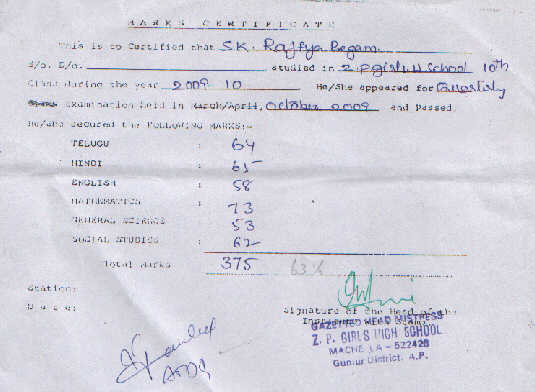 MARKS CERTIFICATE
This is to Certified that S.K. Rajfya Begam.
S/o. D/o. studied in Z.P. girls H School 10th
Class during the year 2009-10 He/She appeared for Quarterly
Examination held in March/April, October 2009 and Passed.
He/She secured the FOLLOWING MARKS:-
TELUGU : 64
HINDI : 65
ENGLISH : 58
MATHEMATICS : 73
GENERAL SCIENCE : 53
SOCIAL STUDIES : 62
Total Marks 375 63%
Station:
Date:
Signature of the Head of the
GAZETTED HEAD MISTRESS
Z. P. GIRLS HIGH SCHOOL
MACHERLA - 522426
Guntur District. A.P.